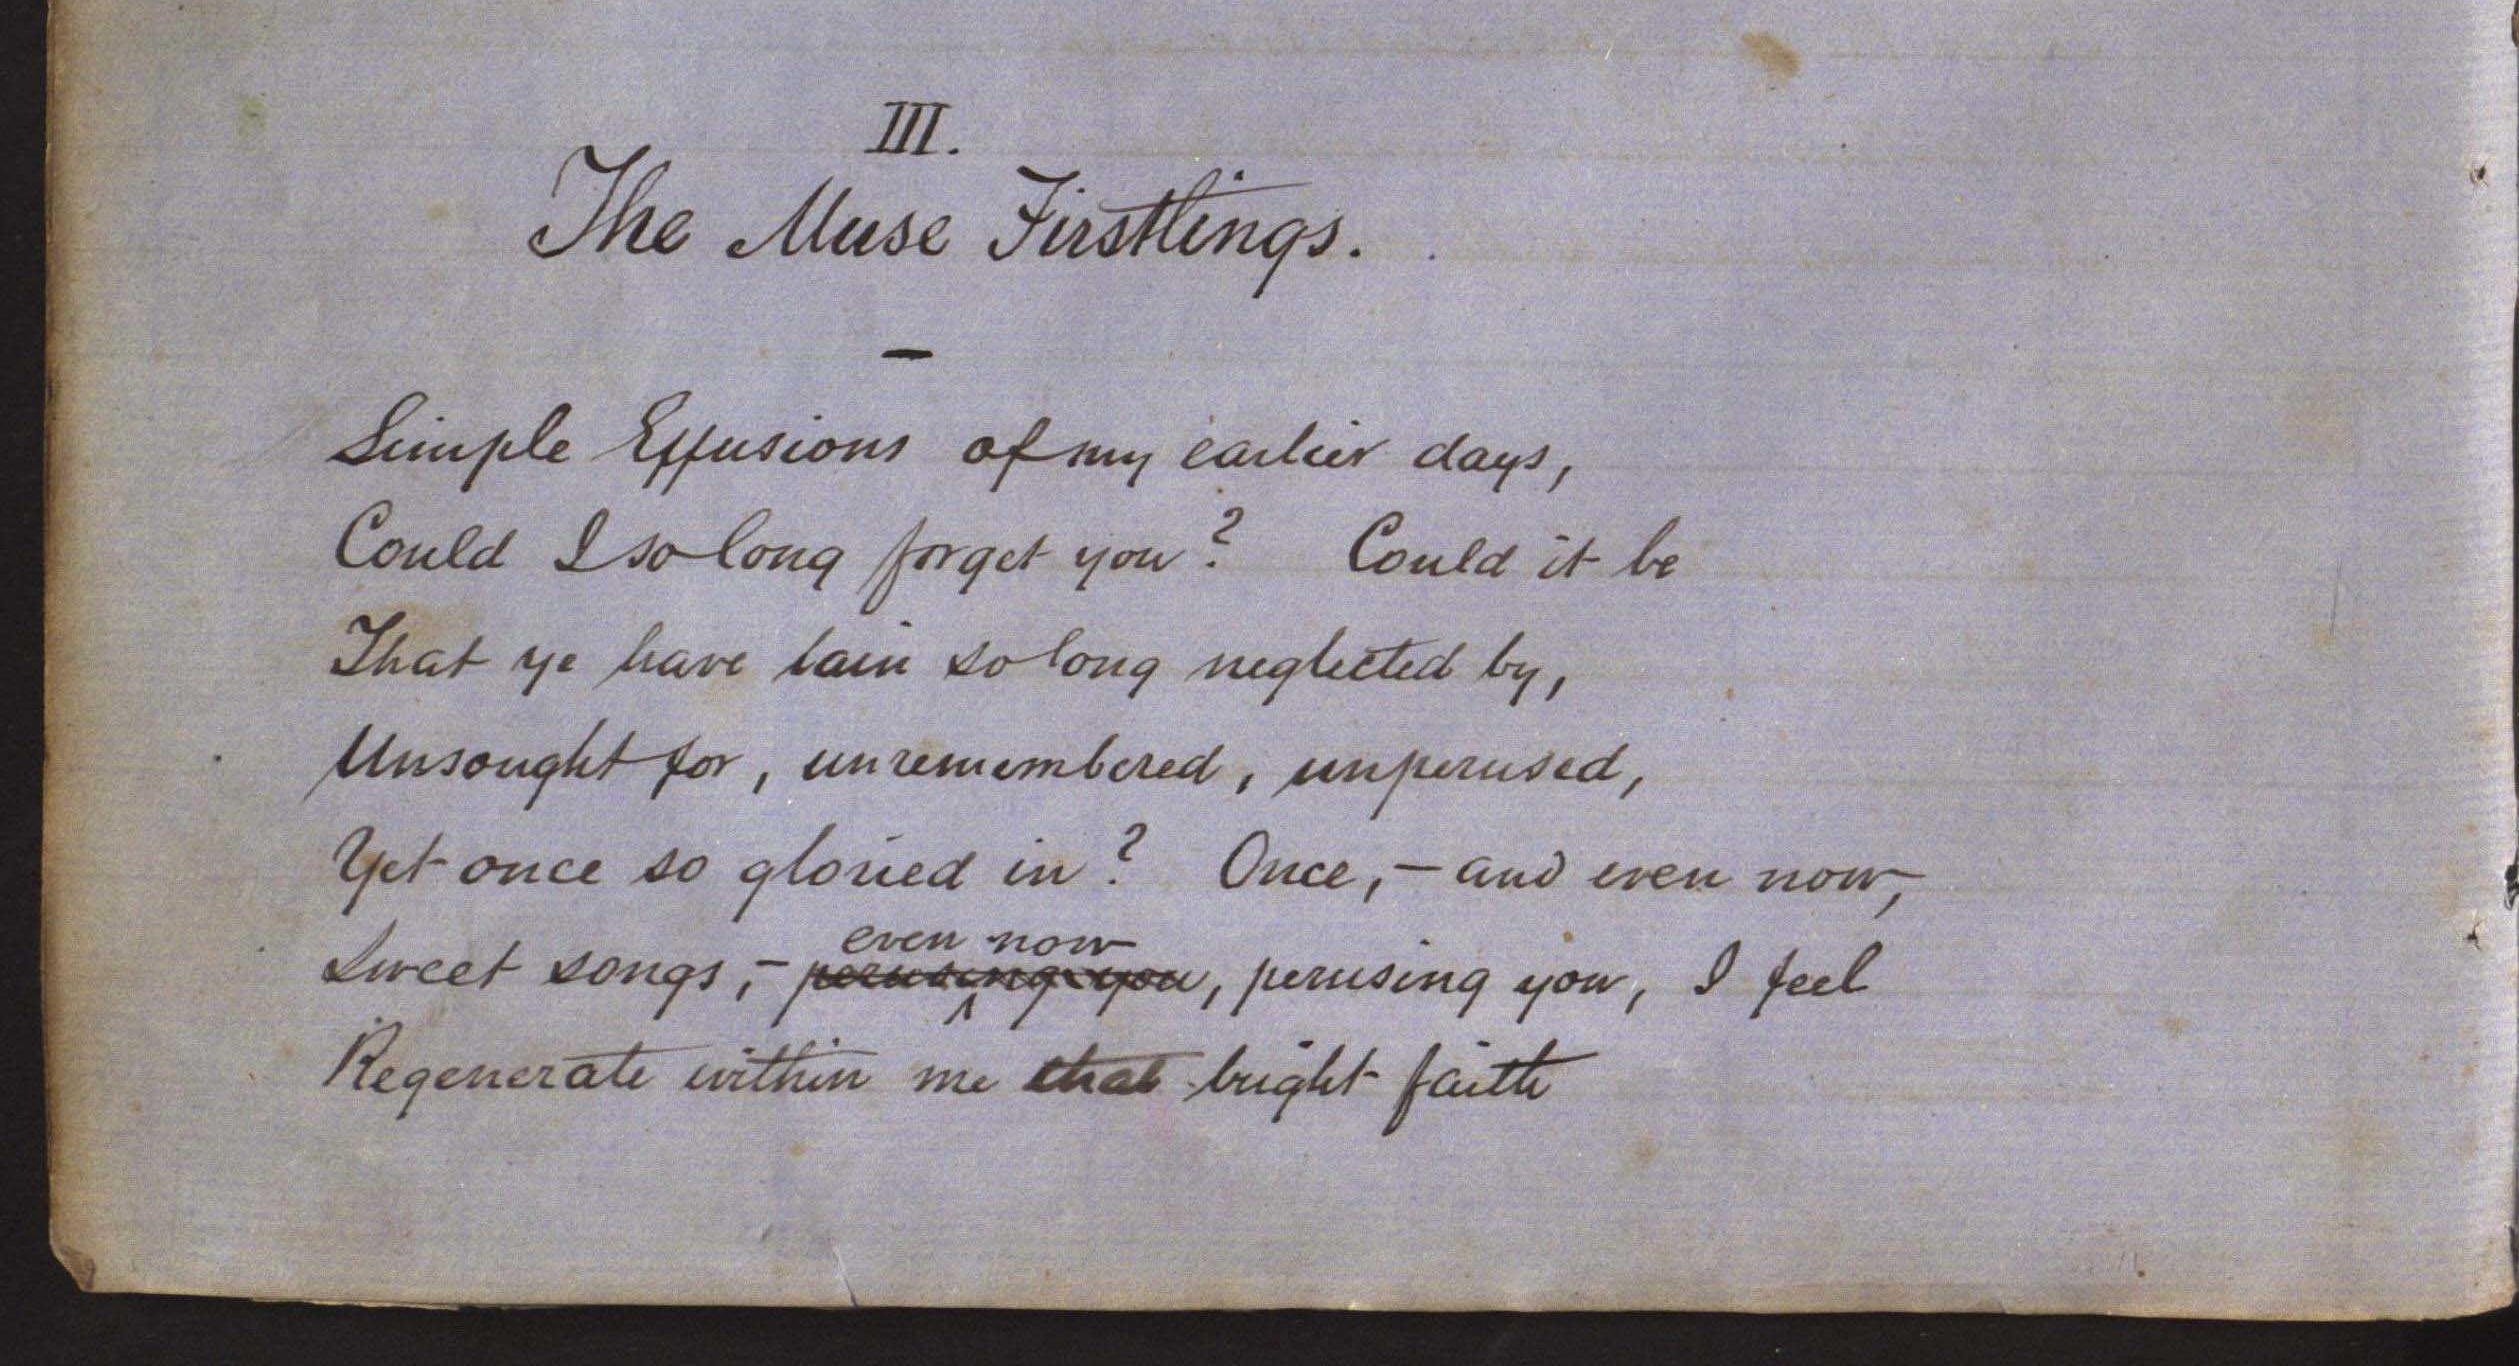 III.
The Muse Firstlings.
—
Simple Effusions of my earlier days,
Could I so long forget you? Could it be
That ye have lain so long neglected by,
Unsought for, unremembered, unperused,
Yet once so gloried in? Once, — and even now,
even now
Sweet songs, — perusing you, perusing you, I feel
Regenerate within me that bright faith